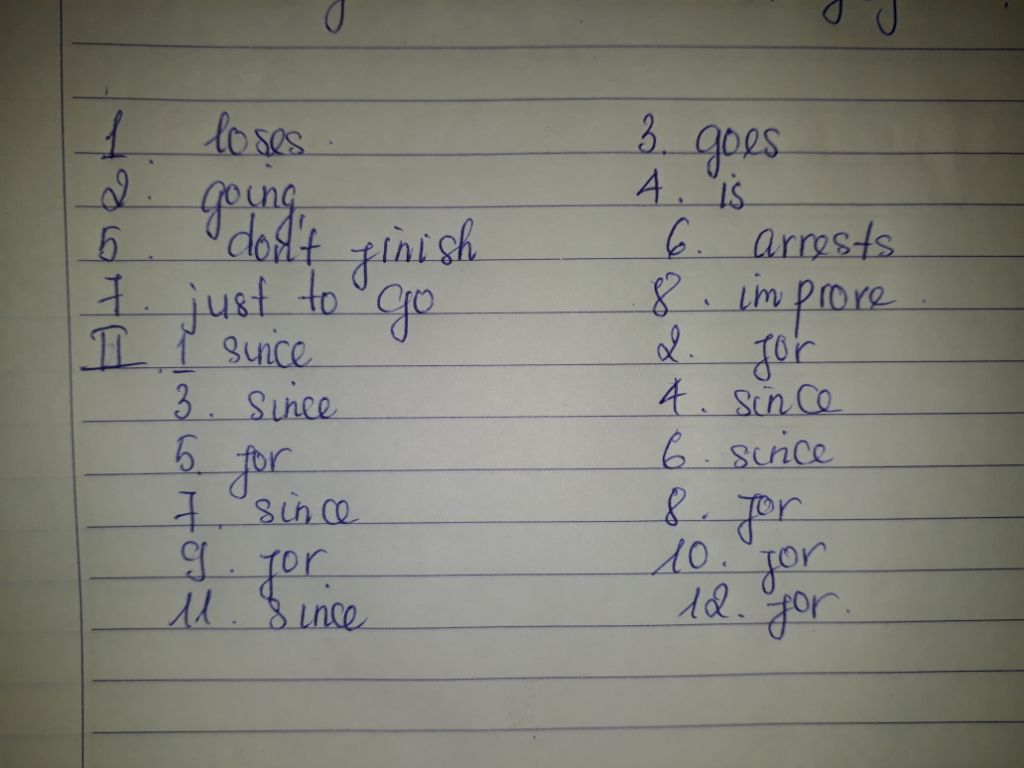 1. loses. 3. goes
2. going 4. is
5. don't finish 6. arrests
7. just to go 8. improve.
II. 1 since 2. for
3. since 4. since
5. for 6. since
7. since 8. for
9. for 10. for
11. since 12. for.